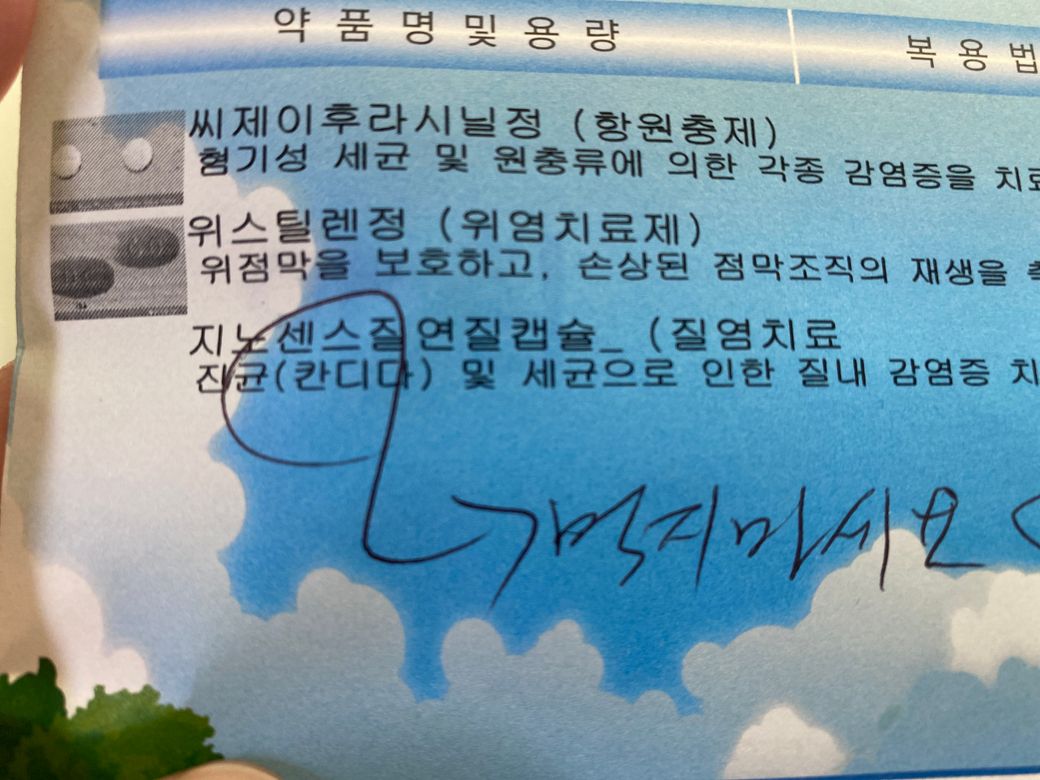 약품명및용량 복용법
씨제이후라시닐정 (항원충제)
혐기성 세균 및 원충류에 의한 각종 감염증을 치료
위스틸렌정 (위염치료제)
위점막을 보호하고, 손상된 점막조직의 재생을
지노센스질연질캡슐_ (질염치료
진균(칸디다) 및 세균으로 인한 질내 감염증 치
먹지마시오